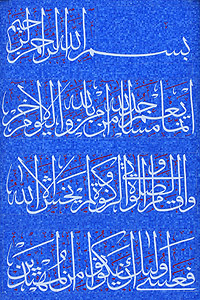 بسم الله الرحمن الرحيم
إنما يعمر مساجد الله من آمن بالله واليوم الآخر
وأقام الصلوة وآتى الزكوة ولم يخش إلا الله
فعسى أولئك أن يكونوا من المهتدين